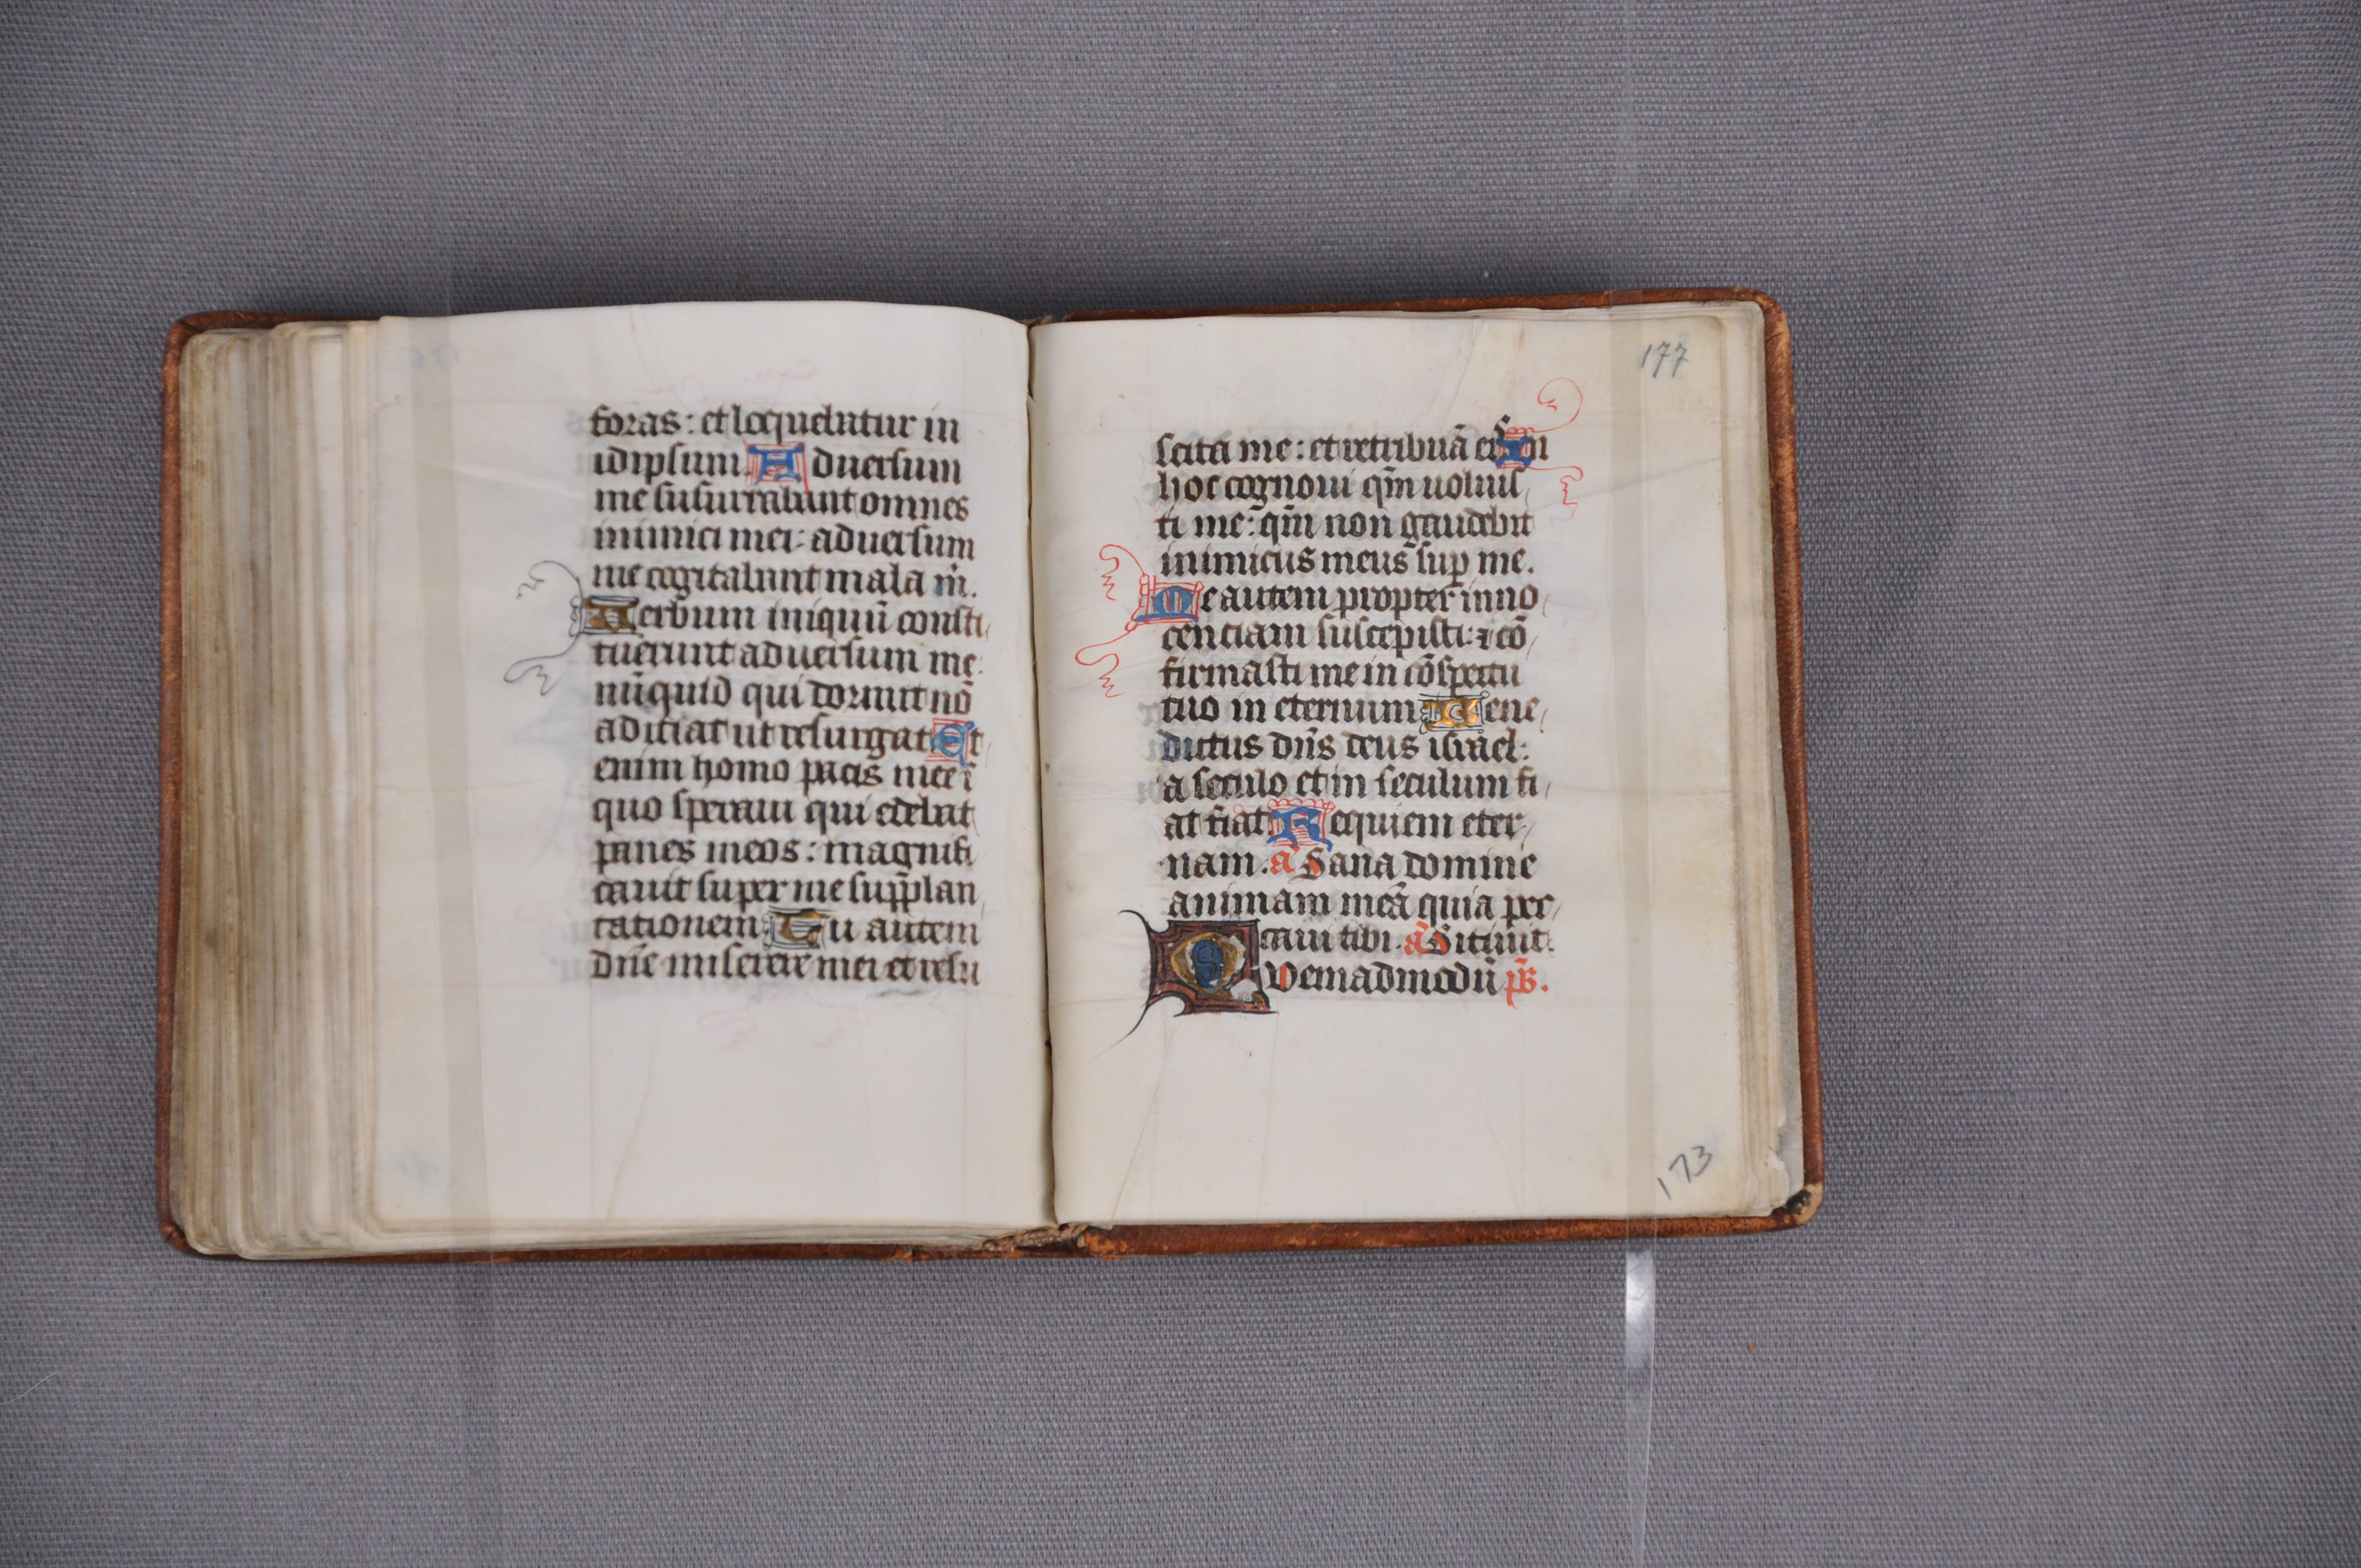 foras: et loquebatur in
idipsum. Aduersum
me susurrabant omnes
inimici mei: aduersum
me cogitabant mala m̄.
Uerbum iniquū consti
tuerunt aduersum me:
nūquid qui dormit nō
adiciat ut resurgat Et
enim homo pacis mee ī
quo speraui qui edebat
panes meos: magnifi
cauit super me supplan
tationem Tu autem
dn̄e miserere mei et resu
177
scita me: et retribuā eis In
hoc cognoui qm̄ uoluis
ti me: qm̄ non gaudebit
inimicus meus sup me.
Me autem propter inno
cenciam suscepisti: ⁊ cō
firmasti me in cōspectu
tuo in eternum Bene
dictus dn̄s deus israel:
a seculo et in seculum fi
at fiat Requiem eter
nam. a᷑ Sana domine
animam meā quia pec
caui tibi. a᷑ Sitiuit
Quemadmodū p̄s.
173